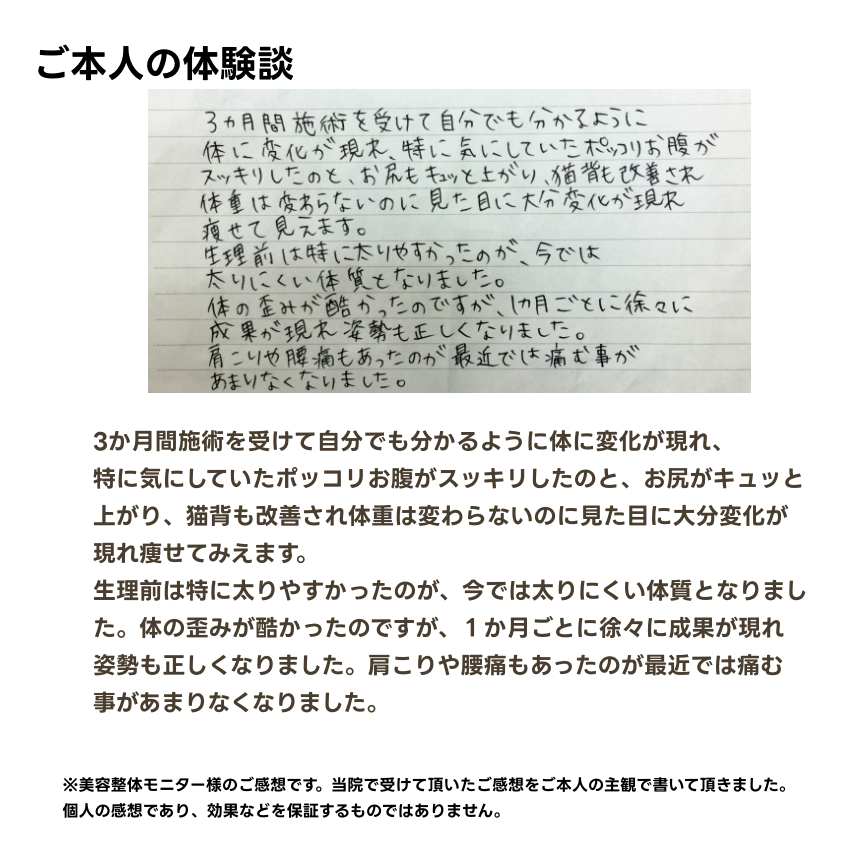 ご本人の体験談
3ヵ月間施術を受けて自分でも分かるように
体に変化が現れ、特に気にしていたポッコリお腹が
スッキリしたのと、お尻もキュッと上がり、猫背も改善され
体重は変わらないのに見た目に大分変化が現れ
痩せて見えます。
生理前は特に太りやすかったのが、今では
太りにくい体質となりました。
体の歪みが酷かったのですが、1カ月ごとに徐々に
成果が現れ姿勢も正しくなりました。
肩こりや腰痛もあったのが最近では痛む事が
あまりなくなりました。
3か月間施術を受けて自分でも分かるように体に変化が現れ、
特に気にしていたポッコリお腹がスッキリしたのと、お尻がキュッと
上がり、猫背も改善され体重は変わらないのに見た目に大分変化が
現れ痩せてみえます。
生理前は特に太りやすかったのが、今では太りにくい体質となりまし
た。体の歪みが酷かったのですが、１か月ごとに徐々に成果が現れ
姿勢も正しくなりました。肩こりや腰痛もあったのが最近では痛む
事があまりなくなりました。
※美容整体モニター様のご感想です。当院で受けて頂いたご感想をご本人の主観で書いて頂きました。
個人の感想であり、効果などを保証するものではありません。